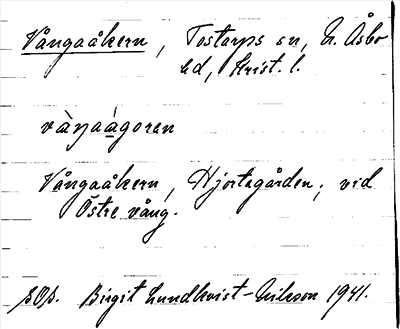 Vångaåkern, Tostarps sn, N. Åsbo
hd, Krist. l.
vàŋaágoran
Vångaåkern, Hjortagården; vid
Östre vång.
Birgit Lundkvist-Nilsson 1941.